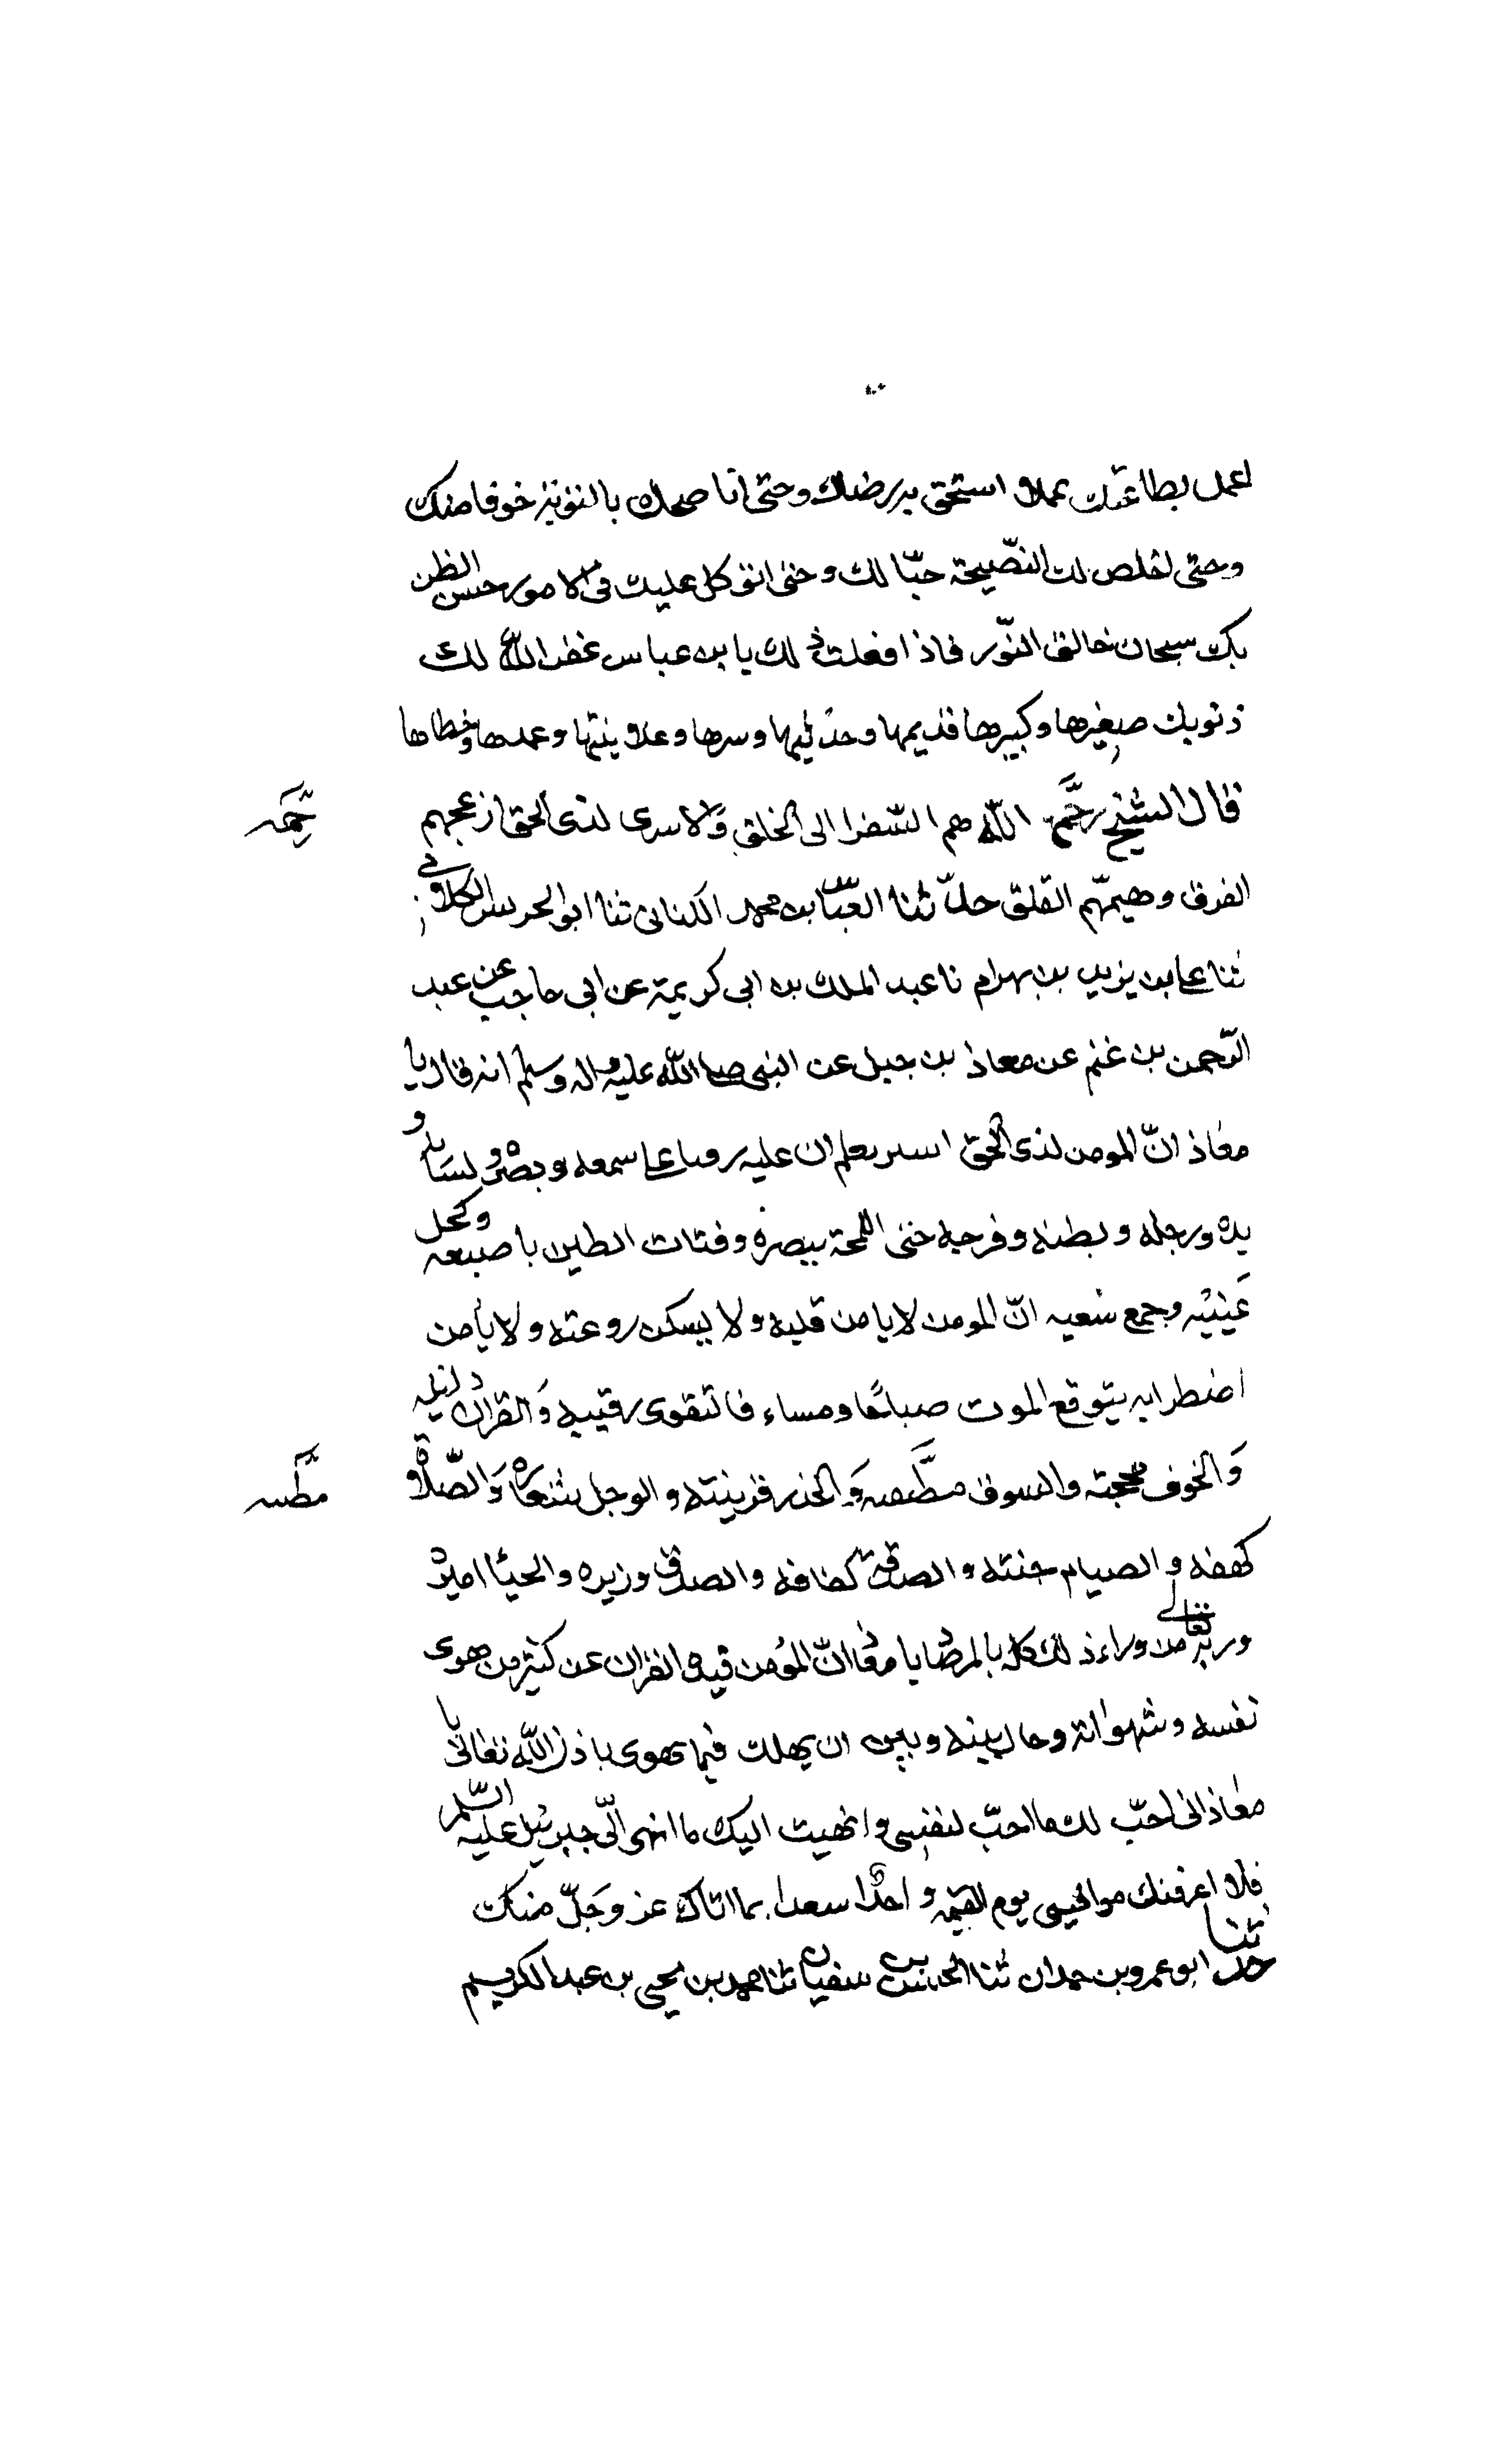 اعمل بطاعتك عملا استحق به رضاك وحتى اناصحك بالتوبة خوفا منك
وحتى اخلص لك النصيحة حبّا لك وحتى اتوكل عليك فى الامور حسن الظن
بك سبحان خالق النّور فاذا فعلت ذلك يا بن عباس غفر الله لك
ذنوبك صغيرها وكبيرها قديمها وحديثها وسرها وعلانيتها وعمدها وخطاها
قال الشيخ رحمه الله هم السّفرا الى الخلق والاسرى لدى الحق ازعجهم
الفرق وهيمّهم القلق حدّثنا العبّاس بن محمد الكنانى ثنا ابو الحريش الكلابى
ثنا على بن يزيد بن بهرام نا عبد الملك بن ابى كريمة عن ابى حاجب عن عبد
الرّحمن بن غنم عن معاذ بن جبل عن النبى صلى الله عليه واله وسلم انه قال يا
معاذ انّ المومن لدى الحق اسير يعلم ان عليه رقيبا على سمعه وبصره ولسانه و
يده ورجله وبطنه وفرجه حتى اللمحة ببصره وفتات الطين باصبعه وكحل
عينيه وجمع سعيه انّ المومن لا يامن قلبه ولا يسكن روعته ولا يامن
اضطرابه يتوقع الموت صباحًا ومساء فالتقوى رقيبه والقران دليله
والخوف محجته والشوق مطيته والحذر قرينته والوجل شعاره والصّلاة
كهفه والصيام جنته والصدقة فكاكه والصدق وزيره والحيا اميره
وربه تعالى من وراء ذلك كله بالمرصاد يا معاذ انّ المؤمن قيده القران عن كثير من هوى
نفسه وشهواته وحال بينه وبين ان يهلك فيما يهوى باذن الله تعالى يا
معاذ انى احبّ لك ما احبّ لنفسى وانهيت اليك ما انهى الىّ جبرئيل عليه السّلم
فلا اعرفنك موافينى يوم القيمة واحدا سعدا بما اتاك عز وجلّ منك
حدثنا ابو عمرو بن حمدان ثنا الحسن بن سفيان ثنا محمد بن يحيى بن عبد الكريم
رحمه
مطيته